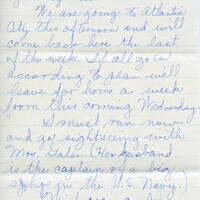 We are going to Atlantic
City this afternoon and will
come back here the last
of the week. If all goes
according to plan will
leave for home a week
from this coming Wednesday.
I must run now
and go sightseeing with
Mrs. Gale. (Her husband
is the captain of a big
in the U.S. Navy.)